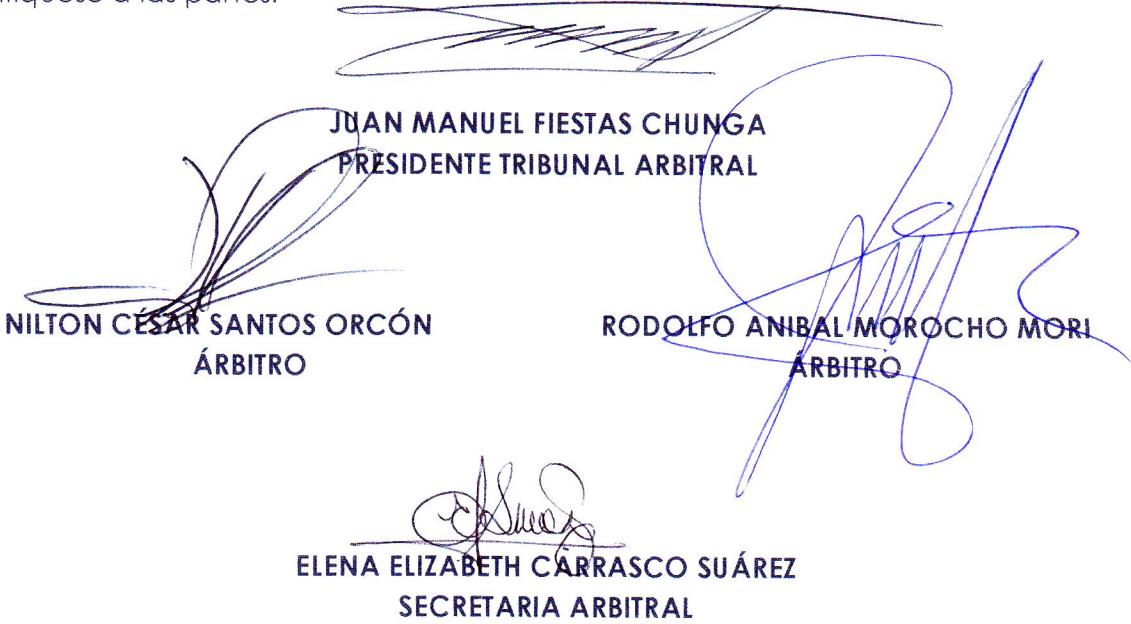 a las partes.
JUAN MANUEL FIESTAS CHUNGA
PRESIDENTE TRIBUNAL ARBITRAL
NILTON CÉSAR SANTOS ORCÓN
ÁRBITRO
RODOLFO ANIBAL MOROCHO MORI
ÁRBITRO
ELENA ELIZABETH CARRASCO SUÁREZ
SECRETARIA ARBITRAL